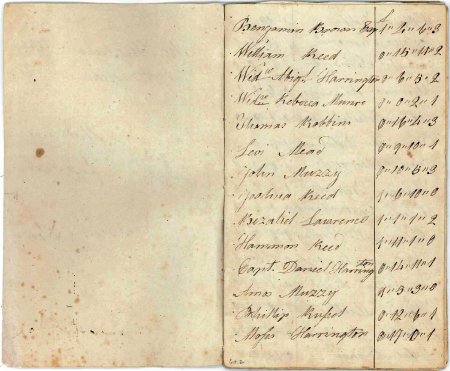 £
Benjamin Brown Esq 1" 2" 6" 3
William Reed 0" 15" 11" 2
Widw Abigl Harrington 0" 6" 5" 2
Widw Rebecca Munro 0" 0" 2" 1
Thomas Robbins 0" 16" 4" 3
Levi Mead 0" 9" 10" 1
John Muzzy 0" 10" 5" 3
Joshua Reed 1" 6" 10" 0
Bezaliel Lawrence 1" 1" 1" 2
Hammon Reed 1" 11" 1" 0
Capt. Daniel Harrington 0" 14" 11" 1
Amos Muzzy 1" 5" 3" 0
Phillip Russel 0" 12" 6" 1
Moses Harrington 0" 17" 0" 1